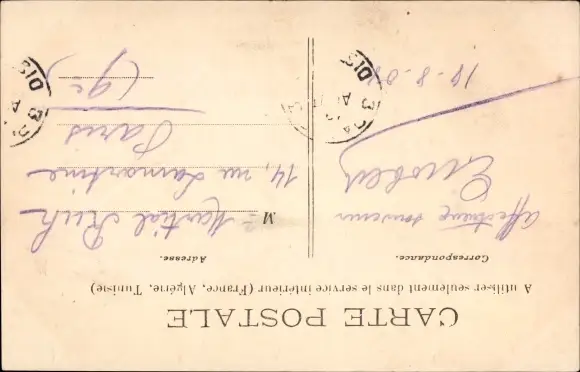 CARTE POSTALE
A utiliser seulement dans le service intérieur (France, Algérie, Tunisie)
Correspondance.
Affectueux souvenir
10-8-08
Adresse.
M Martial
14, rue Lamartine
Paris
(9e)